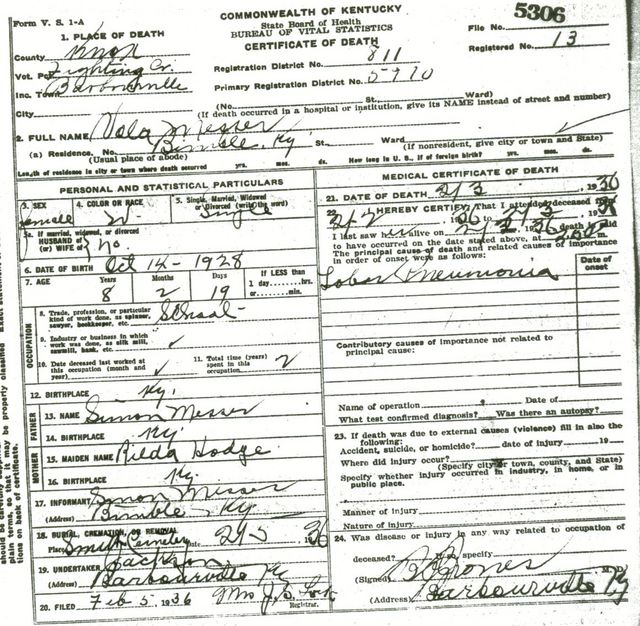 Form V. S. 1-A
COMMONWEALTH OF KENTUCKY
State Board of Health
BUREAU OF VITAL STATISTICS
CERTIFICATE OF DEATH
5306
File No.
Registered No. 13
1. PLACE OF DEATH
County Knox
Vot. Pct. Fighting Cr.
Inc. Town Barbourville
City
Registration District No. 811
Primary Registration District No. 5970
(No. St. Ward)
(If death occurred in a hospital or institution, give its NAME instead of street and number)
2. FULL NAME Vola Messer
(a) Residence. No. Bimble, Ky. St. Ward
(Usual place of abode) (If nonresident, give city or town and State)
Length of residence in city or town where death occurred yrs. mos. ds. How long in U. S., if of foreign birth? yrs. mos. ds.
PERSONAL AND STATISTICAL PARTICULARS
3. SEX 4. COLOR OR RACE 5. Single, Married, Widowed or Divorced (write the word)
Female W Single
5a. If married, widowed, or divorced
HUSBAND of
(or) WIFE of No
6. DATE OF BIRTH Oct 14 - 1928
7. AGE Years Months Days If LESS than
1 day......hrs.
or......min.
8 2 19
OCCUPATION
8. Trade, profession, or particular
kind of work done, as spinner,
sawyer, bookkeeper, etc. School
9. Industry or business in which
work was done, as silk mill,
sawmill, bank, etc.
10. Date deceased last worked at
this occupation (month and
year)
11. Total time (years)
spent in this
occupation 2
12. BIRTHPLACE Ky.
FATHER
13. NAME Simon Messer
14. BIRTHPLACE Ky
MOTHER
15. MAIDEN NAME Rilda Hodge
16. BIRTHPLACE Ky
17. INFORMANT Simon Messer
(Address) Bimble Ky
18. BURIAL, CREMATION, OR REMOVAL
Place Smith Cemetery Date 2-5 1936
19. UNDERTAKER Jackson
(Address) Barbourville Ky
20. FILED Feb 5 1936 Mrs J. S.
Registrar.
MEDICAL CERTIFICATE OF DEATH
21. DATE OF DEATH 2/3 1936
22. I HEREBY CERTIFY That I attended deceased from
2/2 1936 to 2/3 1936
I last saw alive on 2/2 1936 death is said
to have occurred on the date stated above, at m.
The principal cause of death and related causes of importance
in order of onset were as follows:
Date of
onset
Lobar Pneumonia
Contributory causes of importance not related to
principal cause:
Name of operation Date of
What test confirmed diagnosis? Was there an autopsy?
23. If death was due to external causes (violence) fill in also the
following:
Accident, suicide, or homicide? date of injury 19
Where did injury occur?
(Specify city or town, county, and State)
Specify whether injury occurred in industry, in home, or in
public place.
Manner of injury
Nature of injury
24. Was disease or injury in any way related to occupation of
deceased? specify
(Signed) Jones M. D.
(Address) Barbourville Ky